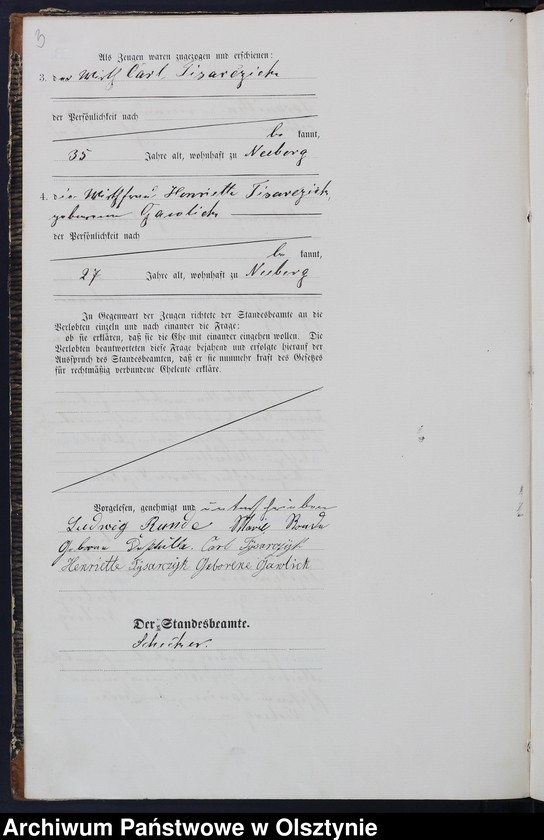 3
Als Zeugen waren zugezogen und erschienen:
3. der Wirth Carl Tisarczick
der Persönlichkeit nach
be kannt,
35 Jahre alt, wohnhaft zu Neeberg
4. die Wirthfrau Henriette Tisarczick,
geborene Gawlick
der Persönlichkeit nach
be kannt,
27 Jahre alt, wohnhaft zu Neeberg
In Gegenwart der Zeugen richtete der Standesbeamte an die
Verlobten einzeln und nach einander die Frage:
ob sie erklären, daß sie die Ehe mit einander eingehen wollen. Die
Verlobten beantworteten diese Frage bejahend und erfolgte hierauf der
Ausspruch des Standesbeamten, daß er sie nunmehr kraft des Gesetzes
für rechtmäßig verbundene Eheleute erkläre.
Vorgelesen, genehmigt und unterschrieben
Ludwig Runde
Geborne Carl Tysarczyk
Henriette Tysarczyk Geborene Gawlick
Der Standesbeamte.
Archiwum Państwowe w Olsztynie